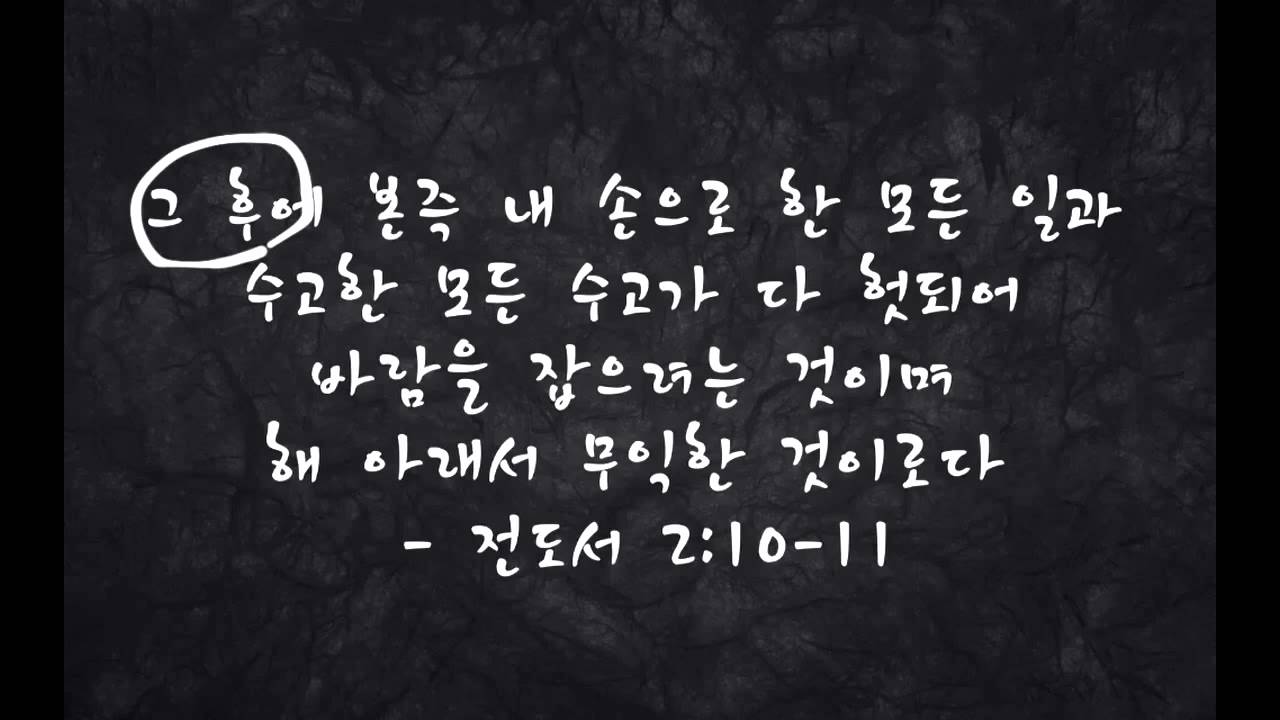 그 후에 본즉 내 손으로 한 모든 일과
수고한 모든 수고가 다 헛되어
바람을 잡으려는 것이며
해 아래서 무익한 것이로다
- 전도서 2:10-11